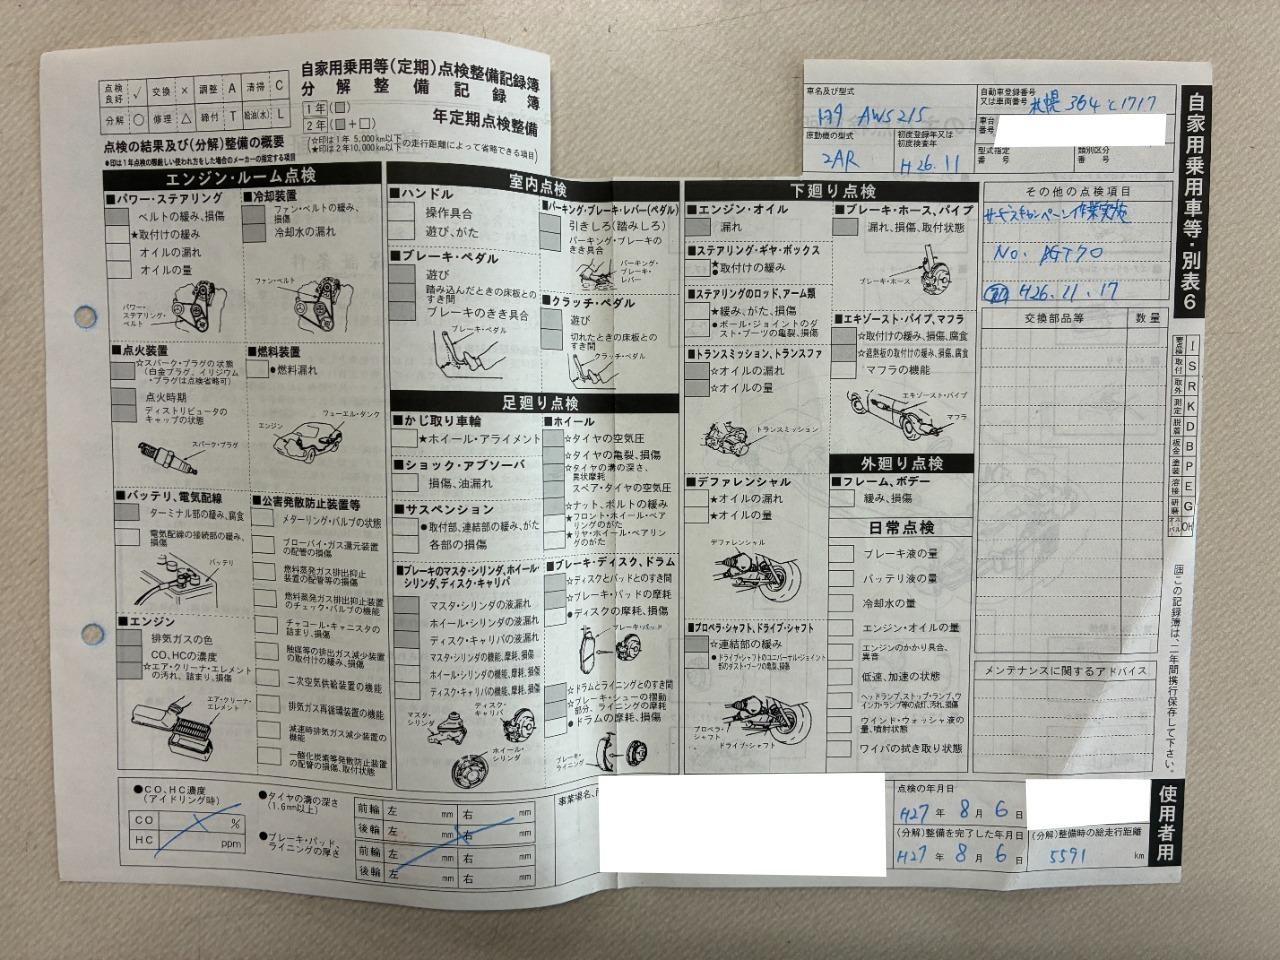 点検良好 ✓ 交換 × 調整 A 清掃 C
分解 ○ 修理 △ 締付 T 給油(水) L
自家用乗用等(定期)点検整備記録簿
分解整備記録簿
1年(□)
2年(□+□)
年定期点検整備
(☆印は1年 5,000km以下
★印は2年10,000km以下
の走行距離によって省略できる項目)
点検の結果及び(分解)整備の概要
●印は1年点検の際厳しい使われ方をした場合のメーカーの指定する項目
車名及び型式
トヨタ AWS215
自動車登録番号又は車両番号
札幌 364 と 1717
原動機の型式
2AR
初度登録年又は初度検査年
H26.11
車台番号
型式指定番号
類別区分番号
自家用乗用車等・別表6
エンジン・ルーム点検
■パワー・ステアリング
ベルトの緩み、損傷
★取付けの緩み
オイルの漏れ
オイルの量
パワー・ステアリング・ベルト
■冷却装置
ファン・ベルトの緩み、損傷
冷却水の漏れ
ファン・ベルト
■点火装置
☆スパーク・プラグの状態
(白金プラグ、イリジウム・プラグは点検省略可)
点火時期
ディストリビュータのキャップの状態
スパーク・プラグ
■燃料装置
●燃料漏れ
フューエル・タンク
エンジン
■バッテリ、電気配線
ターミナル部の緩み、腐食
電気配線の接続部の緩み、損傷
バッテリ
■公害発散防止装置等
メターリング・バルブの状態
ブローバイ・ガス還元装置の配管の損傷
燃料蒸発ガス排出抑止装置の配管等の損傷
燃料蒸発ガス排出抑止装置のチェック・バルブの機能
チャコール・キャニスタの詰まり、損傷
触媒等の排出ガス減少装置の取付けの緩み、損傷
二次空気供給装置の機能
排気ガス再循環装置の機能
減速時排気ガス減少装置の機能
一酸化炭素等発散防止装置の配管の損傷、取付状態
■エンジン
排気ガスの色
CO、HCの濃度
☆エア・クリーナ・エレメントの汚れ、詰まり、損傷
エア・クリーナ・エレメント
室内点検
■ハンドル
操作具合
遊び、がた
■ブレーキ・ペダル
遊び
踏み込んだときの床板とのすき間
ブレーキのきき具合
ブレーキ・ペダル
■パーキング・ブレーキ・レバー(ペダル)
引きしろ(踏みしろ)
パーキング・ブレーキのきき具合
パーキング・ブレーキ・レバー
■クラッチ・ペダル
遊び
切れたときの床板とのすき間
クラッチ・ペダル
足廻り点検
■かじ取り車輪
★ホイール・アライメント
■ショック・アブソーバ
損傷、油漏れ
■サスペンション
●取付部、連結部の緩み、がた
各部の損傷
■ブレーキのマスタ・シリンダ、ホイール・シリンダ、ディスク・キャリパ
マスタ・シリンダの液漏れ
ホイール・シリンダの液漏れ
ディスク・キャリパの液漏れ
マスタ・シリンダの機能、摩耗、損傷
ホイール・シリンダの機能、摩耗、損傷
ディスク・キャリパの機能、摩耗、損傷
マスタ・シリンダ
ディスク・キャリパ
ホイール・シリンダ
■ホイール
☆タイヤの空気圧
☆タイヤの亀裂、損傷
☆タイヤの溝の深さ、異状摩耗
スペア・タイヤの空気圧
☆ナット、ボルトの緩み
★フロント・ホイール・ベアリングのがた
★リヤ・ホイール・ベアリングのがた
■ブレーキ・ディスク、ドラム
☆ディスクとパッドとのすき間
☆ブレーキ・パッドの摩耗
●ディスクの摩耗、損傷
ブレーキ・パッド
☆ドラムとライニングとのすき間
☆ブレーキ・シューの摺動部分、ライニングの摩耗
●ドラムの摩耗、損傷
ブレーキ・ライニング
下廻り点検
■エンジン・オイル
漏れ
■ステアリング・ギヤ・ボックス
★取付けの緩み
■ステアリングのロッド、アーム類
★緩み、がた、損傷
●ボール・ジョイントのダスト・ブーツの亀裂、損傷
■トランスミッション、トランスファ
☆オイルの漏れ
☆オイルの量
トランスミッション
■デファレンシャル
★オイルの漏れ
★オイルの量
デファレンシャル
■プロペラ・シャフト、ドライブ・シャフト
☆連結部の緩み
●ドライブ・シャフトのユニバーサル・ジョイント部のダスト・ブーツの亀裂、損傷
プロペラ・シャフト
ドライブ・シャフト
■ブレーキ・ホース、パイプ
漏れ、損傷、取付状態
ブレーキ・ホース
■エキゾースト・パイプ、マフラ
☆取付けの緩み、損傷、腐食
☆遮熱板の取付けの緩み、損傷、腐食
マフラの機能
エキゾースト・パイプ
マフラ
外廻り点検
■フレーム、ボデー
緩み、損傷
日常点検
ブレーキ液の量
バッテリ液の量
冷却水の量
エンジン・オイルの量
エンジンのかかり具合、異音
低速、加速の状態
ヘッドランプ、ストップ・ランプ、ウインカ・ランプ等の点灯、汚れ、損傷
ウインド・ウォッシャ液の量、噴射状態
ワイパの拭き取り状態
その他の点検項目
サービスキャンペーン作業実施
H26.11.17
交換部品等 数量
要点検 I
取付 S
取外 R
測定 K
脱着 D
板金 B
塗装 P
溶接 E
研磨 G
OH
メンテナンスに関するアドバイス
この記録簿は、二年間携行保存して下さい。
使用者用
●CO、HC濃度
(アイドリング時)
CO %
HC ppm
●タイヤの溝の深さ
(1.6mm以上)
●ブレーキ・パッド、ライニングの厚さ
前輪 左 mm 右 mm
後輪 左 mm 右 mm
前輪 左 mm 右 mm
後輪 左 mm 右 mm
事業場名、
点検の年月日
H27年 8月 6日
(分解)整備を完了した年月日
H27年 8月 6日
(分解)整備時の総走行距離
5591 km